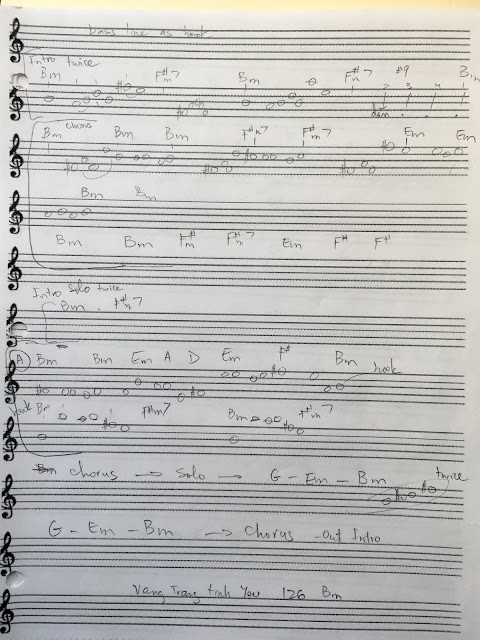 bass line as hook
Intro twice
Bm F#m7 Bm F#m7 #9 Bm
2 3 4 1
chorus
Bm Bm Bm F#m7 F#m7 Em Em
Bm Bm
Bm Bm F#m F#m7 Em F# F#
Intro Solo twice
Bm . F#m7
A Bm Bm Em A D Em F# Bm
hook
hook Bm F#m7 Bm F#m7
chorus → solo → G - Em - Bm twice
G - Em - Bm → chorus - out Intro
Vang Trang tinh Yeu 126 Bm